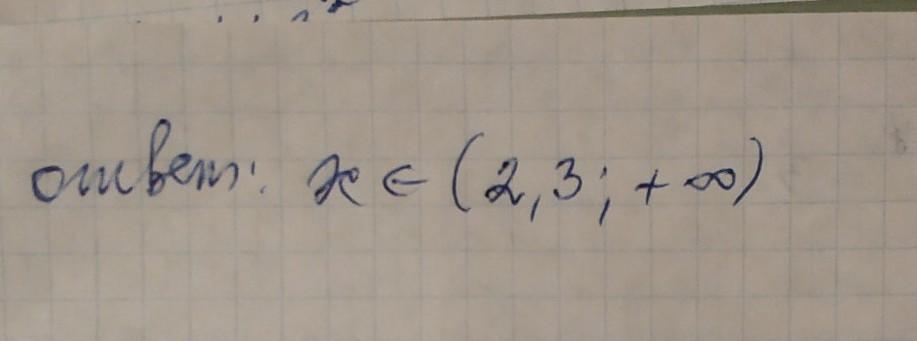 ответ: x ∈ (2,3; +∞)